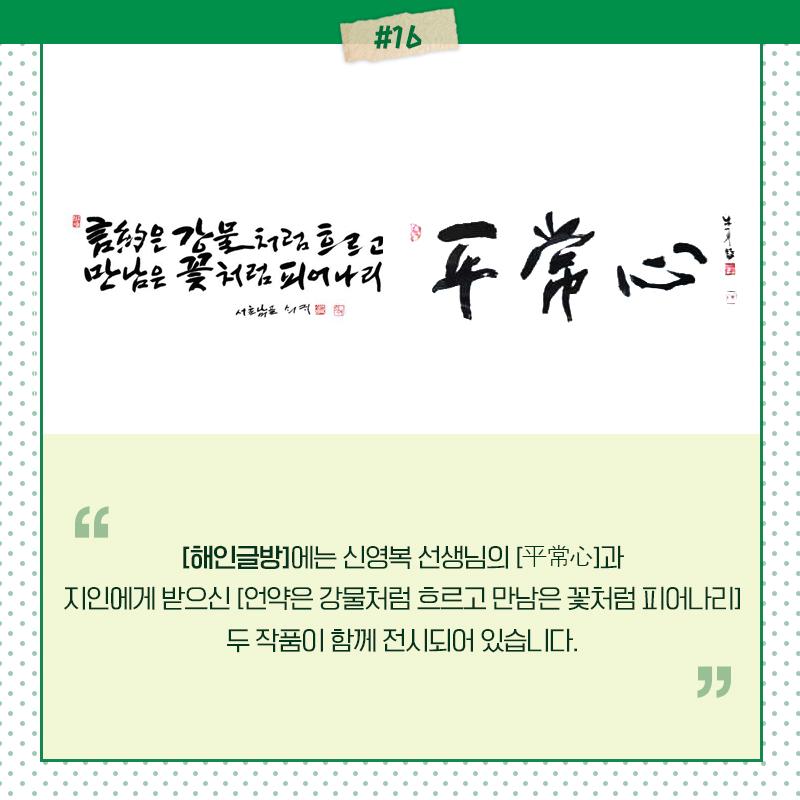 #16
言約은 강물처럼 흐르고
만남은 꽃처럼 피어나리
平常心
[해인글방]에는 신영복 선생님의 [平常心]과
지인에게 받으신 [언약은 강물처럼 흐르고 만남은 꽃처럼 피어나리]
두 작품이 함께 전시되어 있습니다.